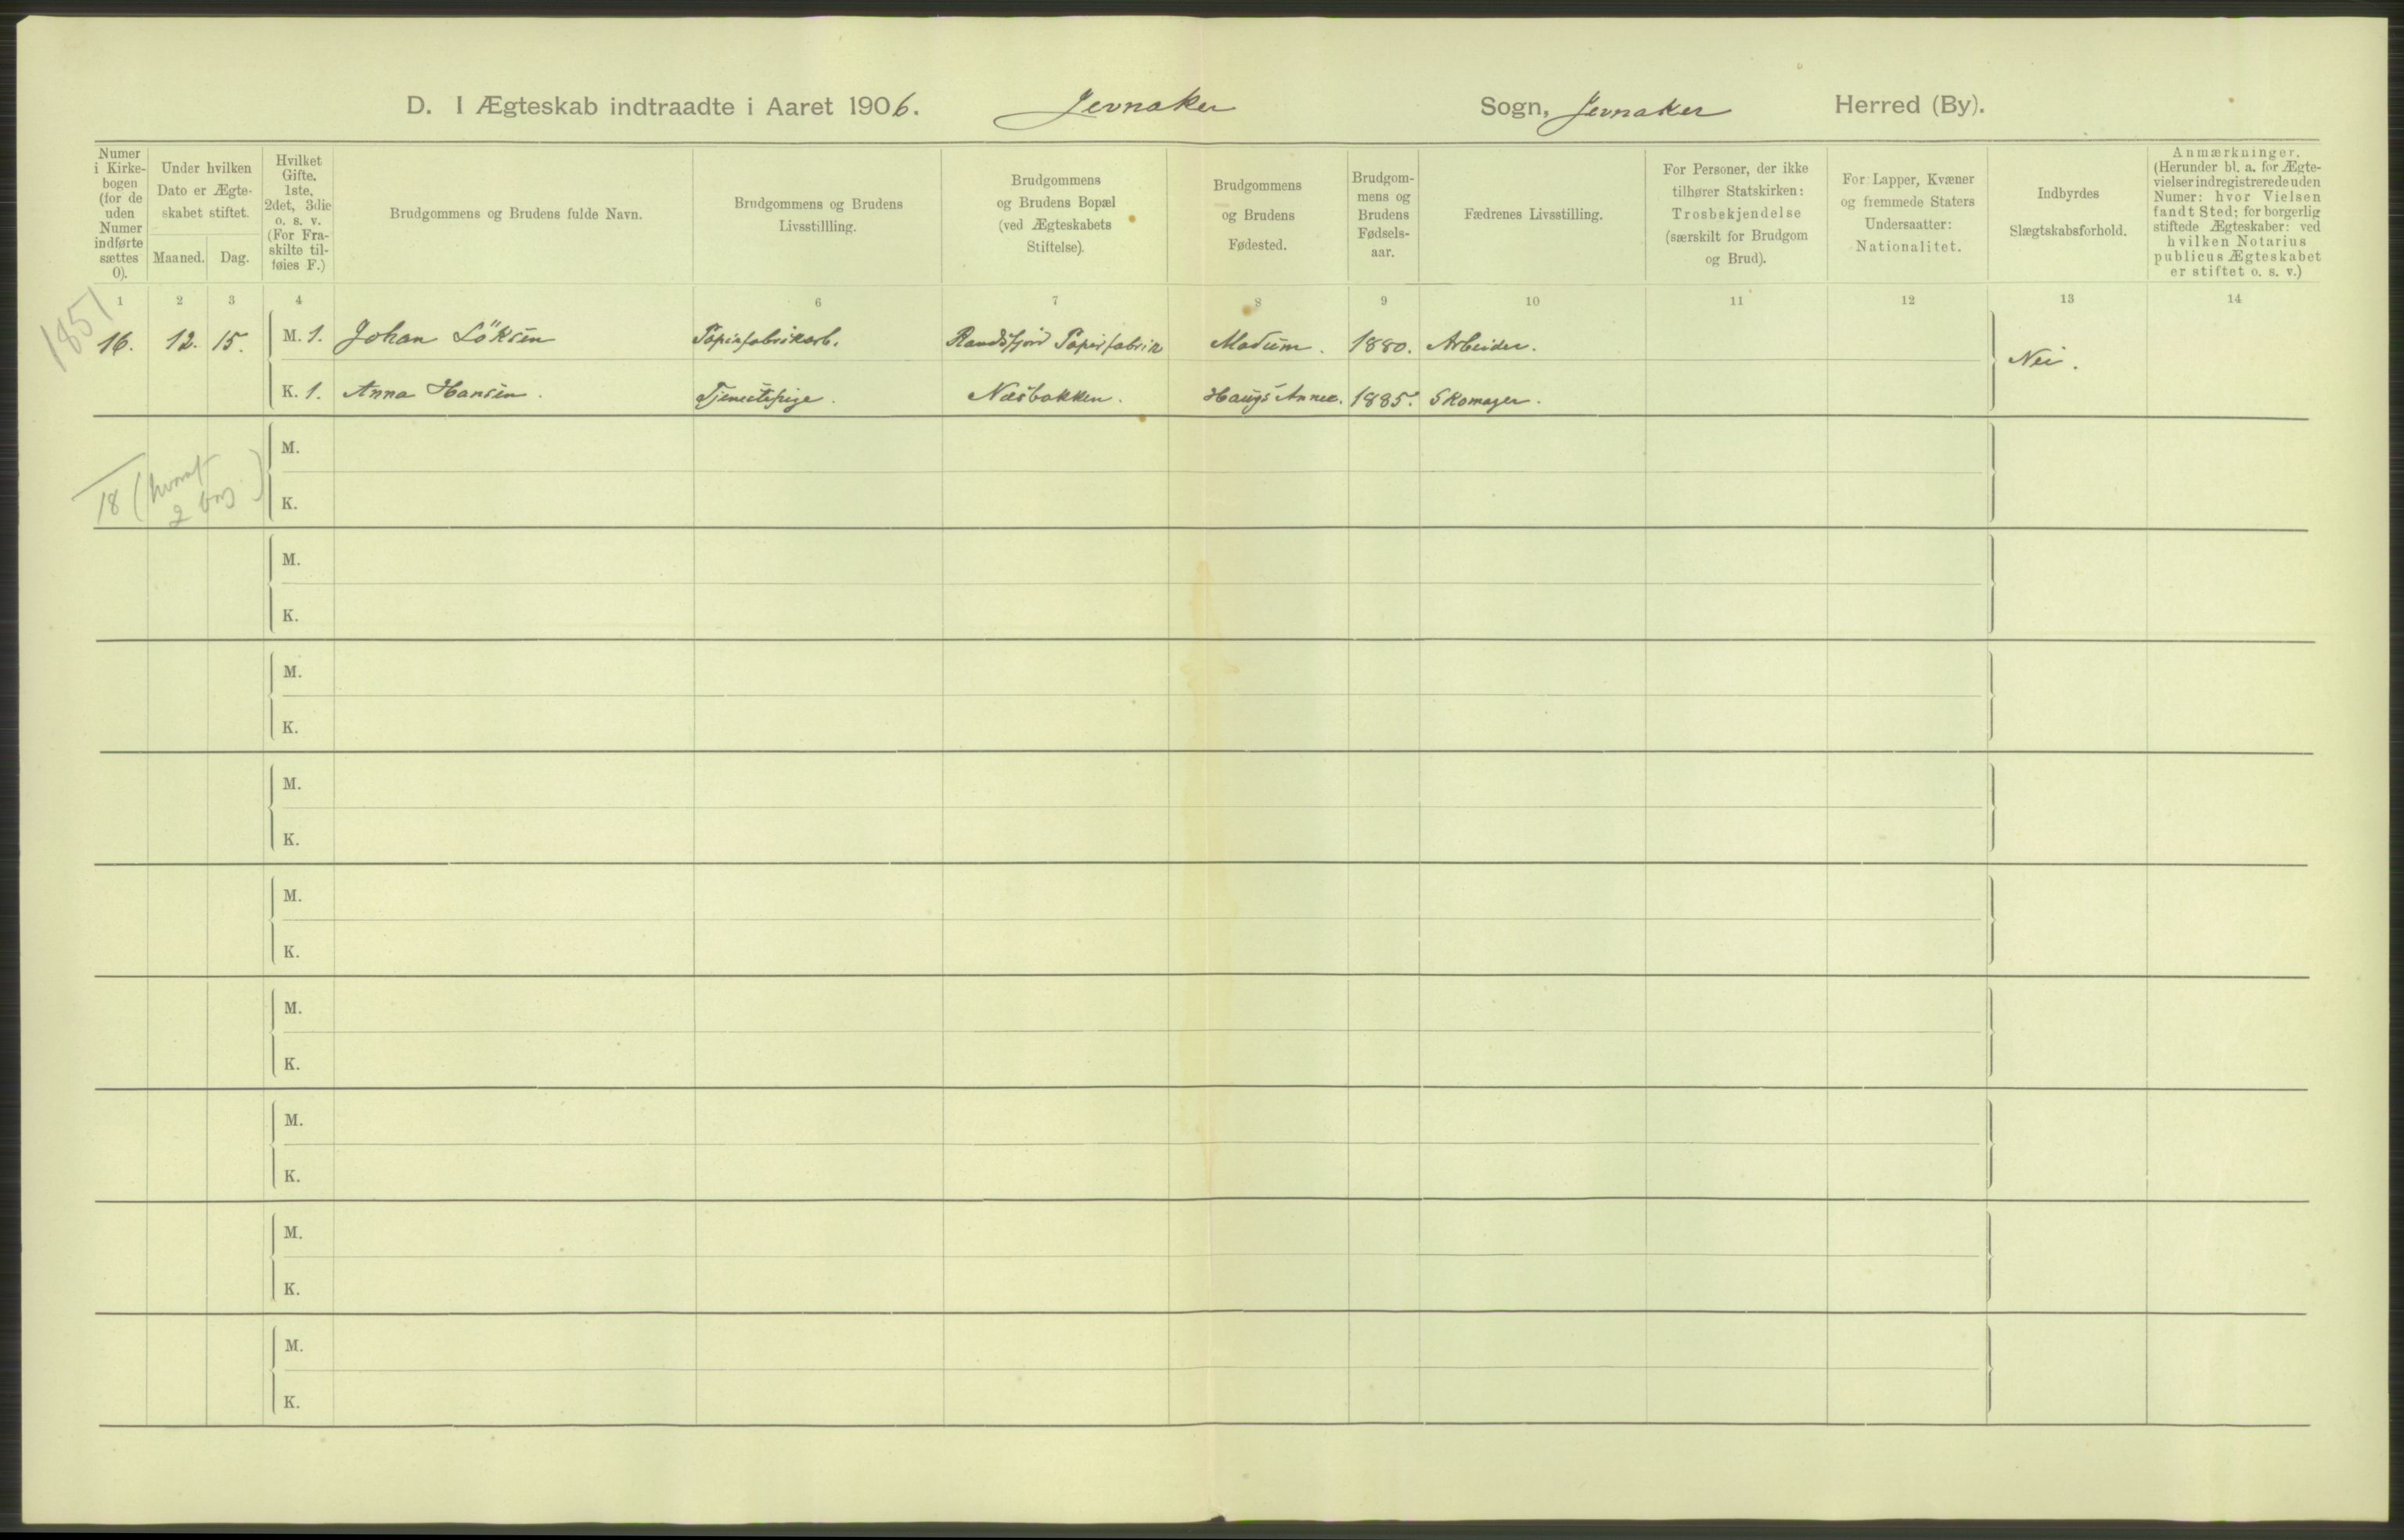 D. I Ægteskab indtraadte i Aaret 1906. Jevnaker Sogn, Jevnaker Herred (By).
Numer i Kirke-bogen (for de uden Numer indførte sættes 0).
Under hvilken Dato er Ægte-skabet stiftet.
Maaned. Dag.
Hvilket Gifte. 1ste, 2det, 3die o. s. v. (For Fra-skilte til-føies F.)
Brudgommens og Brudens fulde Navn.
Brudgommens og Brudens Livsstillling.
Brudgommens og Brudens Bopæl (ved Ægteskabets Stiftelse).
Brudgommens og Brudens Fødested.
Brudgom-mens og Brudens Fødsels-aar.
Fædrenes Livsstilling.
For Personer, der ikke tilhører Statskirken: Trosbekjendelse (særskilt for Brudgom og Brud).
For Lapper, Kvæner og fremmede Staters Undersaatter: Nationalitet.
Indbyrdes Slægtskabsforhold.
Anmærkninger. (Herunder bl. a. for Ægte-vielser indregistrerede uden Numer: hvor Vielsen fandt Sted; for borgerlig stiftede Ægteskaber: ved hvilken Notarius publicus Ægteskabet er stiftet o. s. v.)
1 2 3 4 6 7 8 9 10 11 12 13 14
1851
16. 12. 15. M. 1. Johan Löksen Papirfabrikarb. Randsfjord Papirfabrik Modum. 1880. Arbeider.
Nei.
K. 1. Anna Hansen. Tjenestepige. Næsbakken. Haugs Annex. 1885. Skomager.
M.
18 (hvoraf 2 borg)
K.
M.
K.
M.
K.
M.
K.
M.
K.
M.
K.
M.
K.
M.
K.
M.
K.